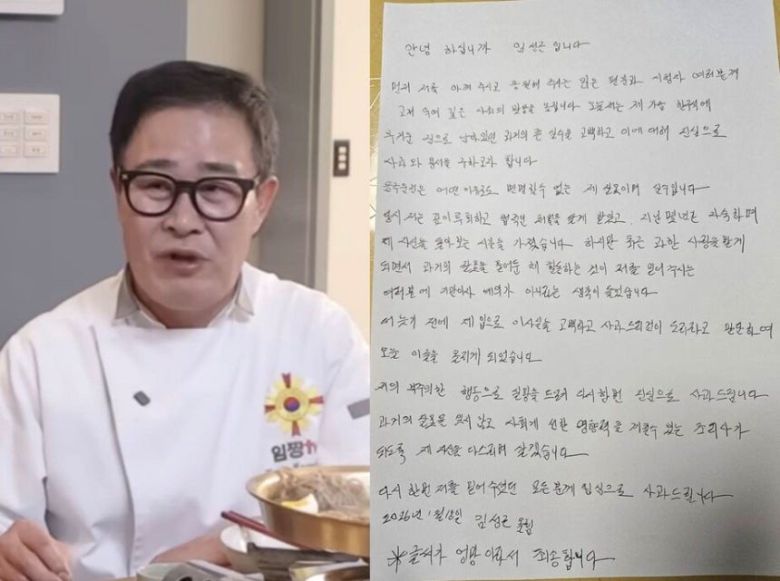 임짱
안녕 하십니까 임성근 입니다
먼저 저를 아껴 주시고 응원해 주시는 많은 팬분과 시청자 여러분께
고개 숙여 깊은 사죄의 말씀을 드립니다 오늘 저는 제 가슴 한켠에
무거운 짐으로 남아있던 과거의 큰 실수를 고백하고 이에 대해 진심으로
사과와 용서를 구하고자 합니다
음주운전은 어떤 이유로도 변명할수 없는 제 잘못이며 실수입니다
당시 저는 깊이 후회하고 법적인 처벌을 달게 받았고 지난 몇년간 자숙하며
제 자신을 돌아 보는 시간을 가졌습니다 하지만 최근 과한 사랑을 받게
되면서 과거의 잘못을 묻어둔 채 활동하는 것이 저를 믿어주시는
여러분에 기만이자 예의가 아니라는 생각이 들었습니다
더 늦기 전에 제 입으로 이사실을 고백하고 사과드리는 것이 도리라고 판단하여
오늘 이글을 올리게 되었습니다
저의 부주의한 행동으로 실망을 드려 다시한번 진심으로 사과드립니다
과거의 잘못을 잊지 않고 사회에 선한 영향력을 끼칠수 있는 조리사가
되도록 제 자신을 다스리며 살겠습니다
다시 한번 저를 믿어 주셨던 모든 분께 진심으로 사과드립니다
2026년 1월 임성근 올림
※글씨가 엉망 이라서 죄송합니다